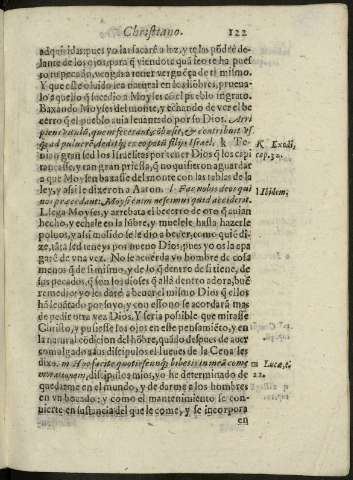 Christiano. 122
adquiridas, pues yo las sacaré a luz, y te las põdré de-
lante de los ojos, para q̃ viendote quã feo te ha pues
to tu pecado, vengas a tener verguẽça de ti mismo.
Y que este oluido sea natural en los hõbres, prueua
lo aquello q̃ sucedio a Moyses cõ el pueblo ingrato.
Baxando Moyses del monte, y echando de ver el be
cerro q̃ el pueblo auia leuantado por su Dios. Arri
piens vitulũ, quem fecerant, cõbusit, & contriuit vs
q; ad puluerẽ, deditq; ex eo potũ filijs Israel. k Te-
nian gran sed los Israelitas por tener Dios q̃ los capi
taneasse, y tan gran priessa, q̃ no quisieron aguardar
a que Moysen baxasse del monte con las tablas de la
ley, y assi le dixeron a Aaron. l Fac nobis deos qui
nos præcedant: Moysi enim nescimus quid acciderit.
Llega Moyses, y arrebata el becerro de oro q̃ auian
hecho, y echale en la lũbre, y muelele hasta hazerle
poluos, y assi molido se le dio a beuer, como quiẽ di-
ze, tãta sed teneys por meno Dios, pues yo os la apa
garé de vna vez. No se acuerda vn hombre de cosa
menos q̃ de si mismo, y de lo q̃ dentro de si tiene, de
sus pecados, q̃ son los dioses q̃ allà dentro adora, buẽ
remedio: yo les daré a beuer el mismo Dios q̃ ellos
hã leuãtado por suyo, y con esso no se acordarà mas
de pedir otra vez Dios. Y seria possible que mirasse
Christo, y pusiesse los ojos en este pensamiẽto, y en
la natural cõdicion del hõbre, quãdo despues de auer
comulgado a sus discipulos el Iueues de la Cena les
dixo. m Hoc facite quotiescunq; bibetis in meã come
morationem, discipulos mios, yo he determinado de
quedarme en el mundo, y de darme a los hombres
en vn bocado: y como el mantenimiento se con-
uierte en sustancia del que le come, y se incorpora
en
K Exodi,
cap. 32.
l Ibidem,
m Lucæ,
22.